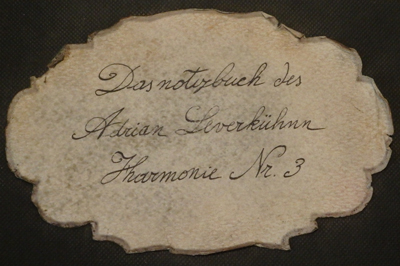 Das notizbuch des
Adrian Leverkühnn
Fharmonie Nr. 3